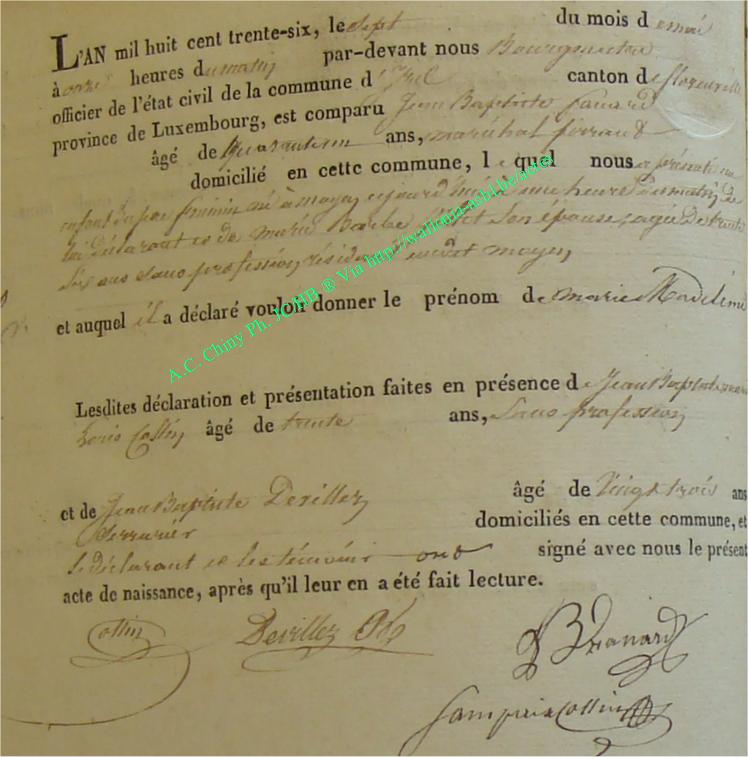 L'AN mil huit cent trente-six, le sept du mois d e mai
à onze heures du matin par-devant nous Bourgmestre
officier de l'état civil de la commune d' Izel canton de florenville
province de Luxembourg, est comparu Jean Baptiste
âgé de quarante un ans, maréchal ferrant
domicilié en cette commune, l e quel nous a présenté un
enfant du sexe féminin né à moyen aujourd'hui à une heure du matin, de
lui déclarant et de marie Barbe son épouse, agée de trente
six ans sans profession, résidant audit moyen
et auquel il a déclaré vouloir donner le prénom de marie Madeleine
A.C. Chiny Ph. JCHB ® Via http://wallonia-asbl.be/actes/
Lesdites déclaration et présentation faites en présence de Jean Baptiste
Louis Collin âgé de trente ans, sans profession
et de Jean Baptiste Devillez âgé de vingt trois ans
serrurier domiciliés en cette commune, et
le déclarant et les témoins ont signé avec nous le présent
acte de naissance, après qu'il leur en a été fait lecture.
Collin Devillez